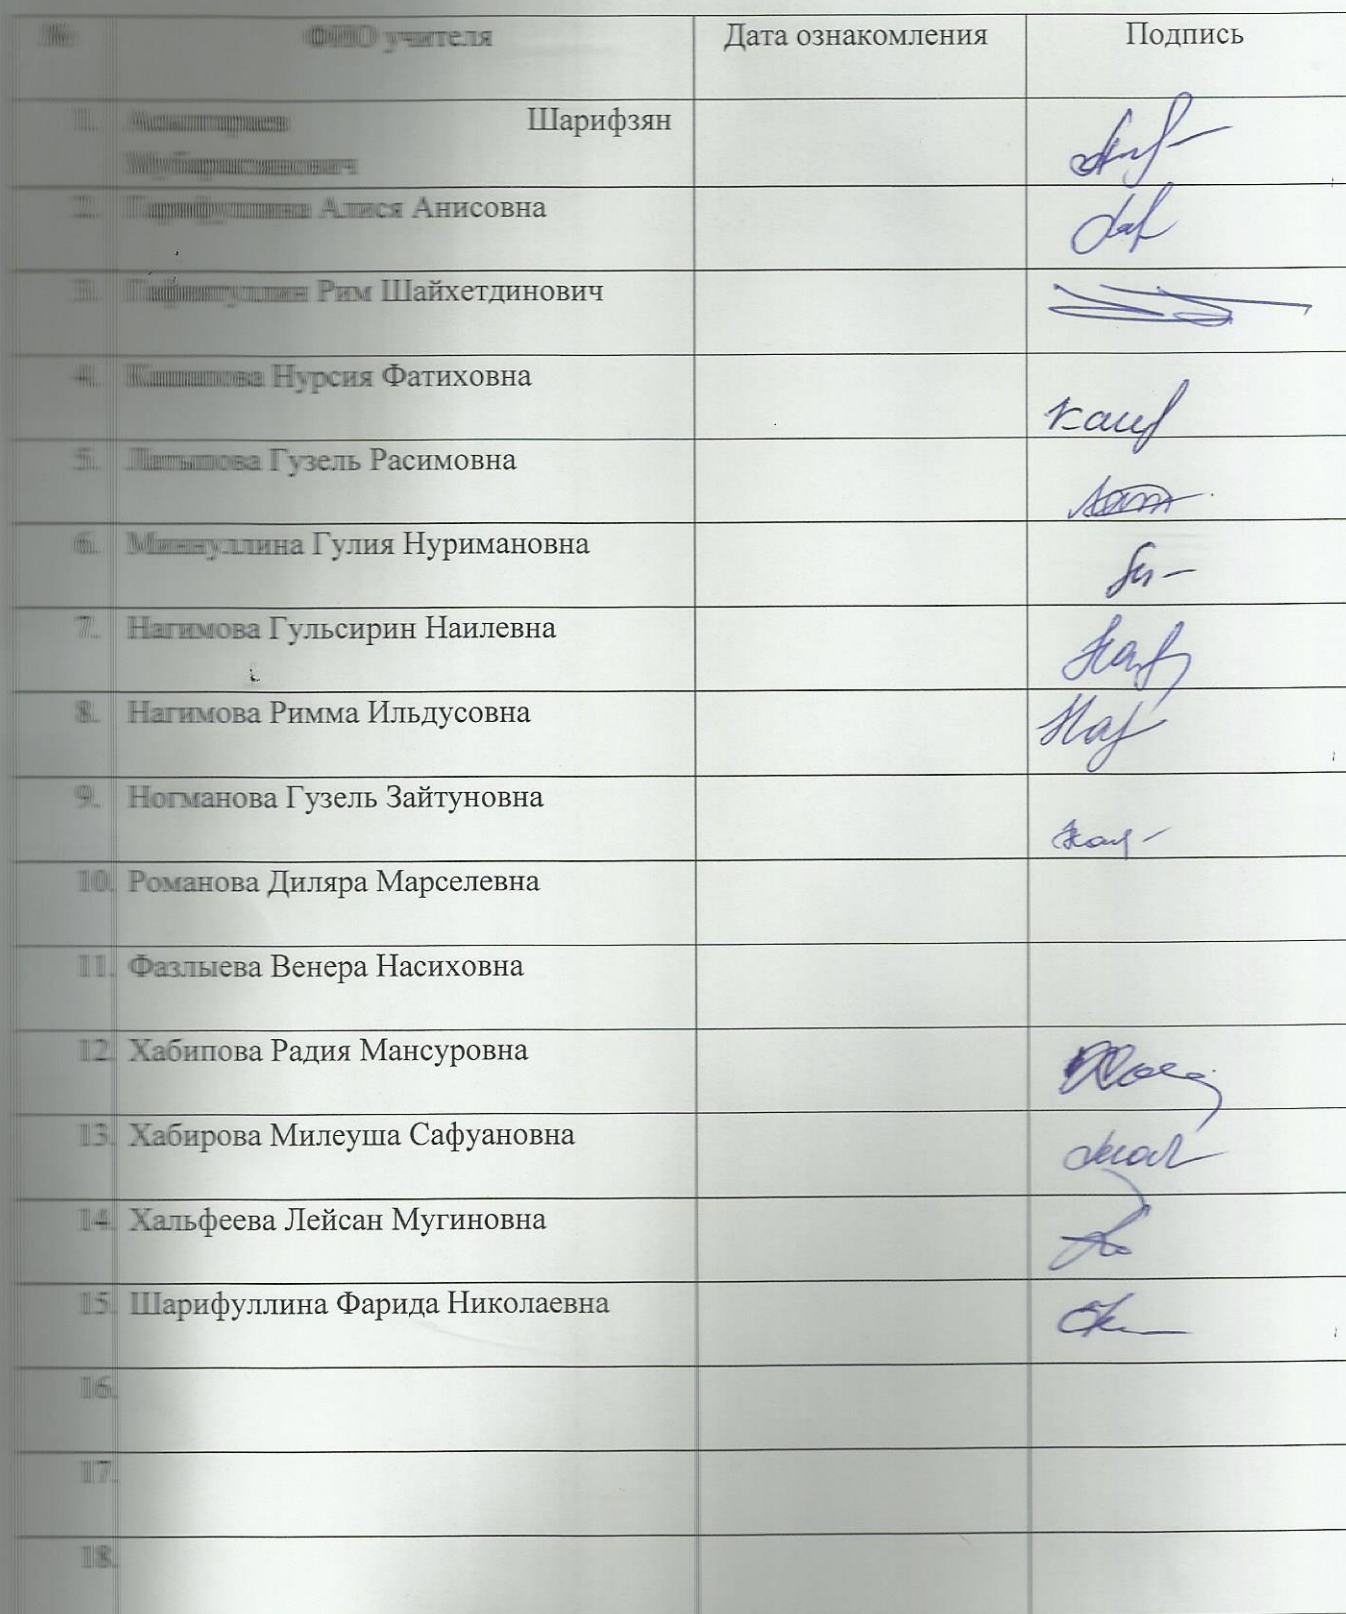 № ФИО учителя Дата ознакомления Подпись
1. Шарифзян
Мубаракзянович
2. Гарифуллина Алися Анисовна
3. Рим Шайхетдинович
4. Кашапова Нурсия Фатиховна
5. Латыпова Гузель Расимовна
6. Миннуллина Гулия Нуримановна
7. Нагимова Гульсирин Наилевна
8. Нагимова Римма Ильдусовна
9. Ногманова Гузель Зайтуновна
10. Романова Диляра Марселевна
11. Фазлыева Венера Насиховна
12. Хабипова Радия Мансуровна
13. Хабирова Милеуша Сафуановна
14. Хальфеева Лейсан Мугиновна
15. Шарифуллина Фарида Николаевна
16.
17.
18.